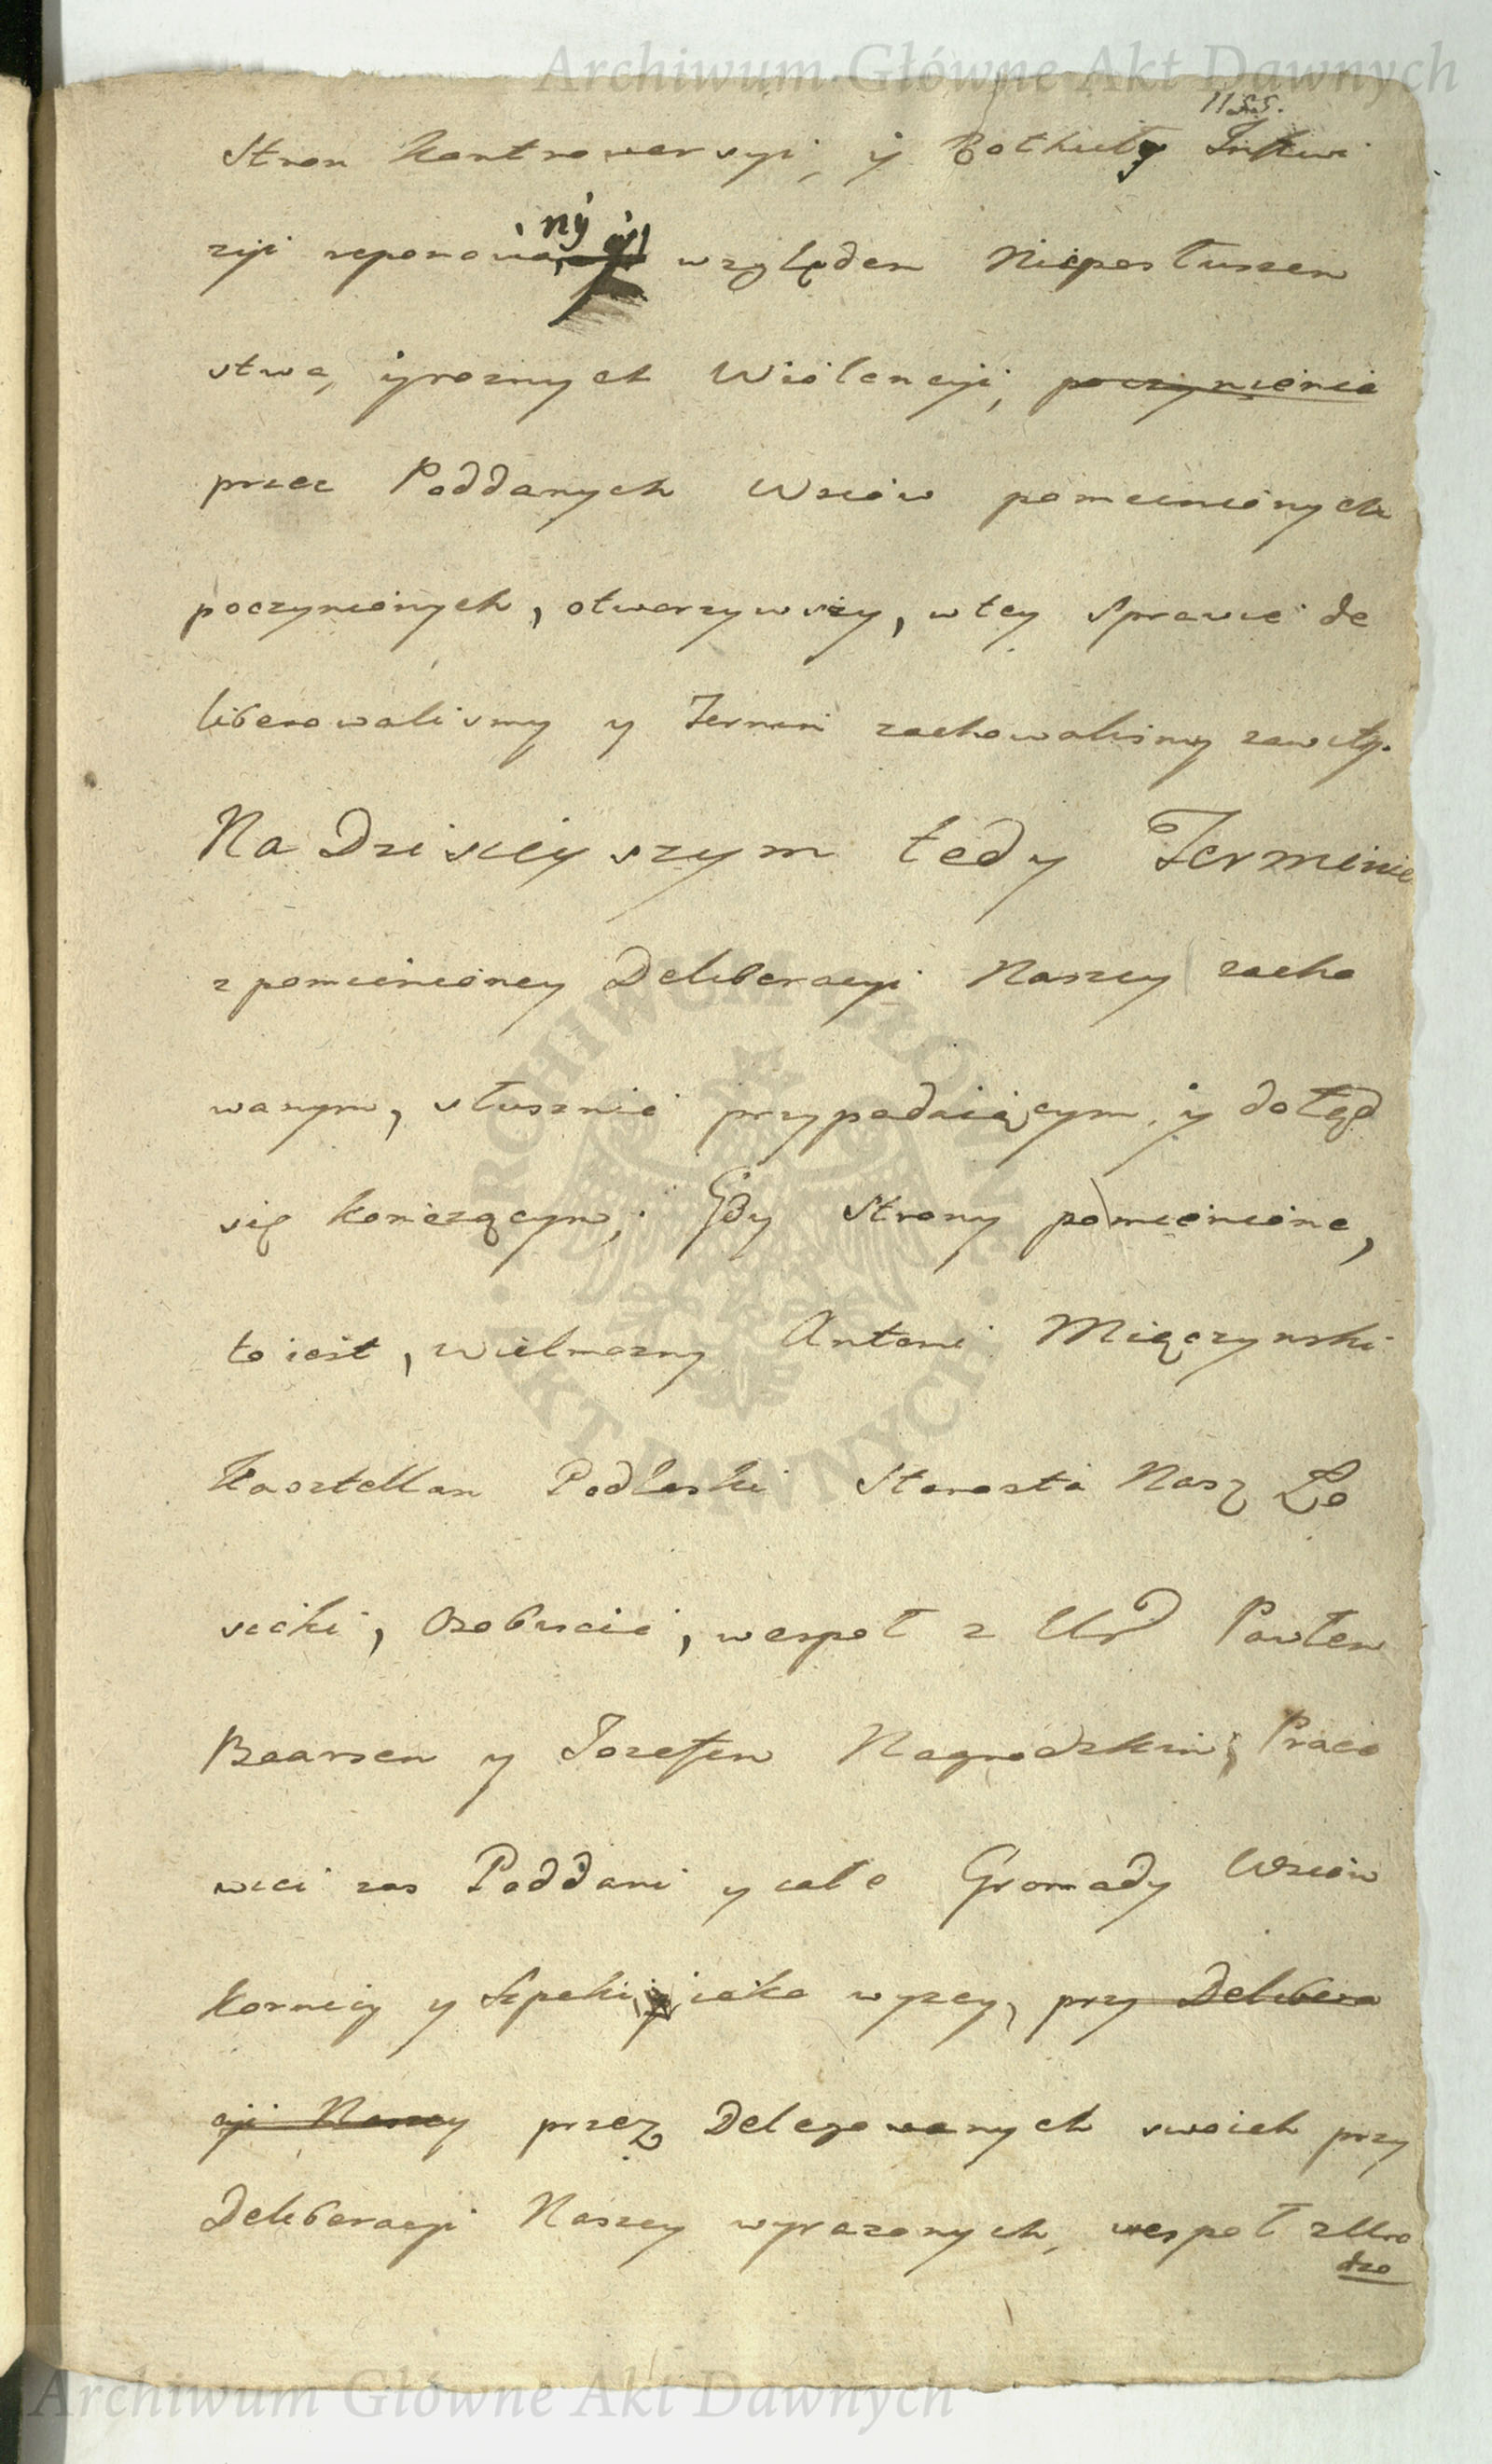 Archiwum Główne Akt Dawnych
Stron Kontrowersyi, y Rotuły Inkwi
zyi reponowa ny względem Niepostuszen
stwa, y roznych Wiolencyi, poczynienia
przez Poddanych Wsiów pomienionych
poczynionych, otworzywszy, w tey Sprawie de
liberowalismy y Termin zachowalismy zawity.
Na Dzisieyszym tedy Terminie
z pomienioney Deliberacyi Naszey zacho
wanym, słusznie przypadaiącym, y dotąd
się konczącym; Gdy Strony pomienione,
to iest, Wielmozny Antoni Miączynski
Kasztellan Podlaski Starosta Nasz Ło
sicki, Osobiscie, wespoł z Ur Pawłem
Baarsem y Jozefem Nagrodzkim; Praco
wici zas Poddani y całe Gromady Wsiów
Kornicy y Szpaki iako wyzey, przy Delibera
cyi Naszey przez Delegowanych swoich przy
Deliberacyi Naszey wyrazonych, wespoł z Uro
dzo
ARCHIWUM GŁÓWNE AKT DAWNYCH
Archiwum Główne Akt Dawnych